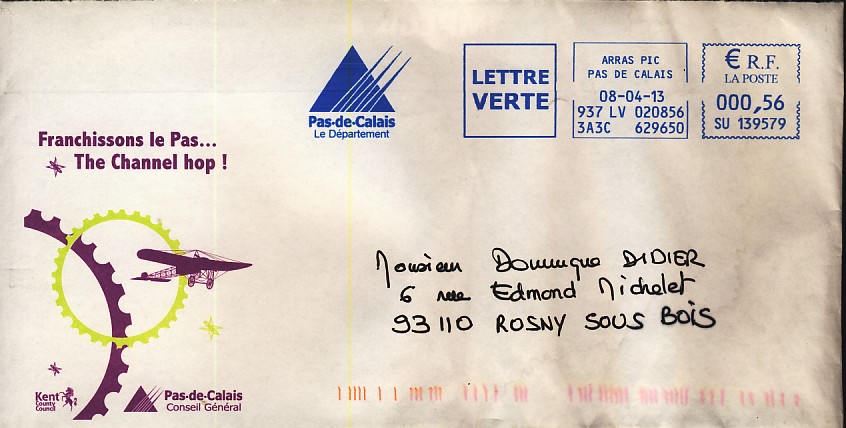 Franchissons le Pas...
The Channel hop !
Pas-de-Calais
Le Département
LETTRE
VERTE
ARRAS PIC
PAS DE CALAIS
08-04-13
937 LV 020856
3A3C 629650
€ R.F.
LA POSTE
000,56
SU 139579
Monsieur Dominique DIDIER
6 rue Edmond Michelet
93110 ROSNY SOUS BOIS
Kent
County
Council
Pas-de-Calais
Conseil Général